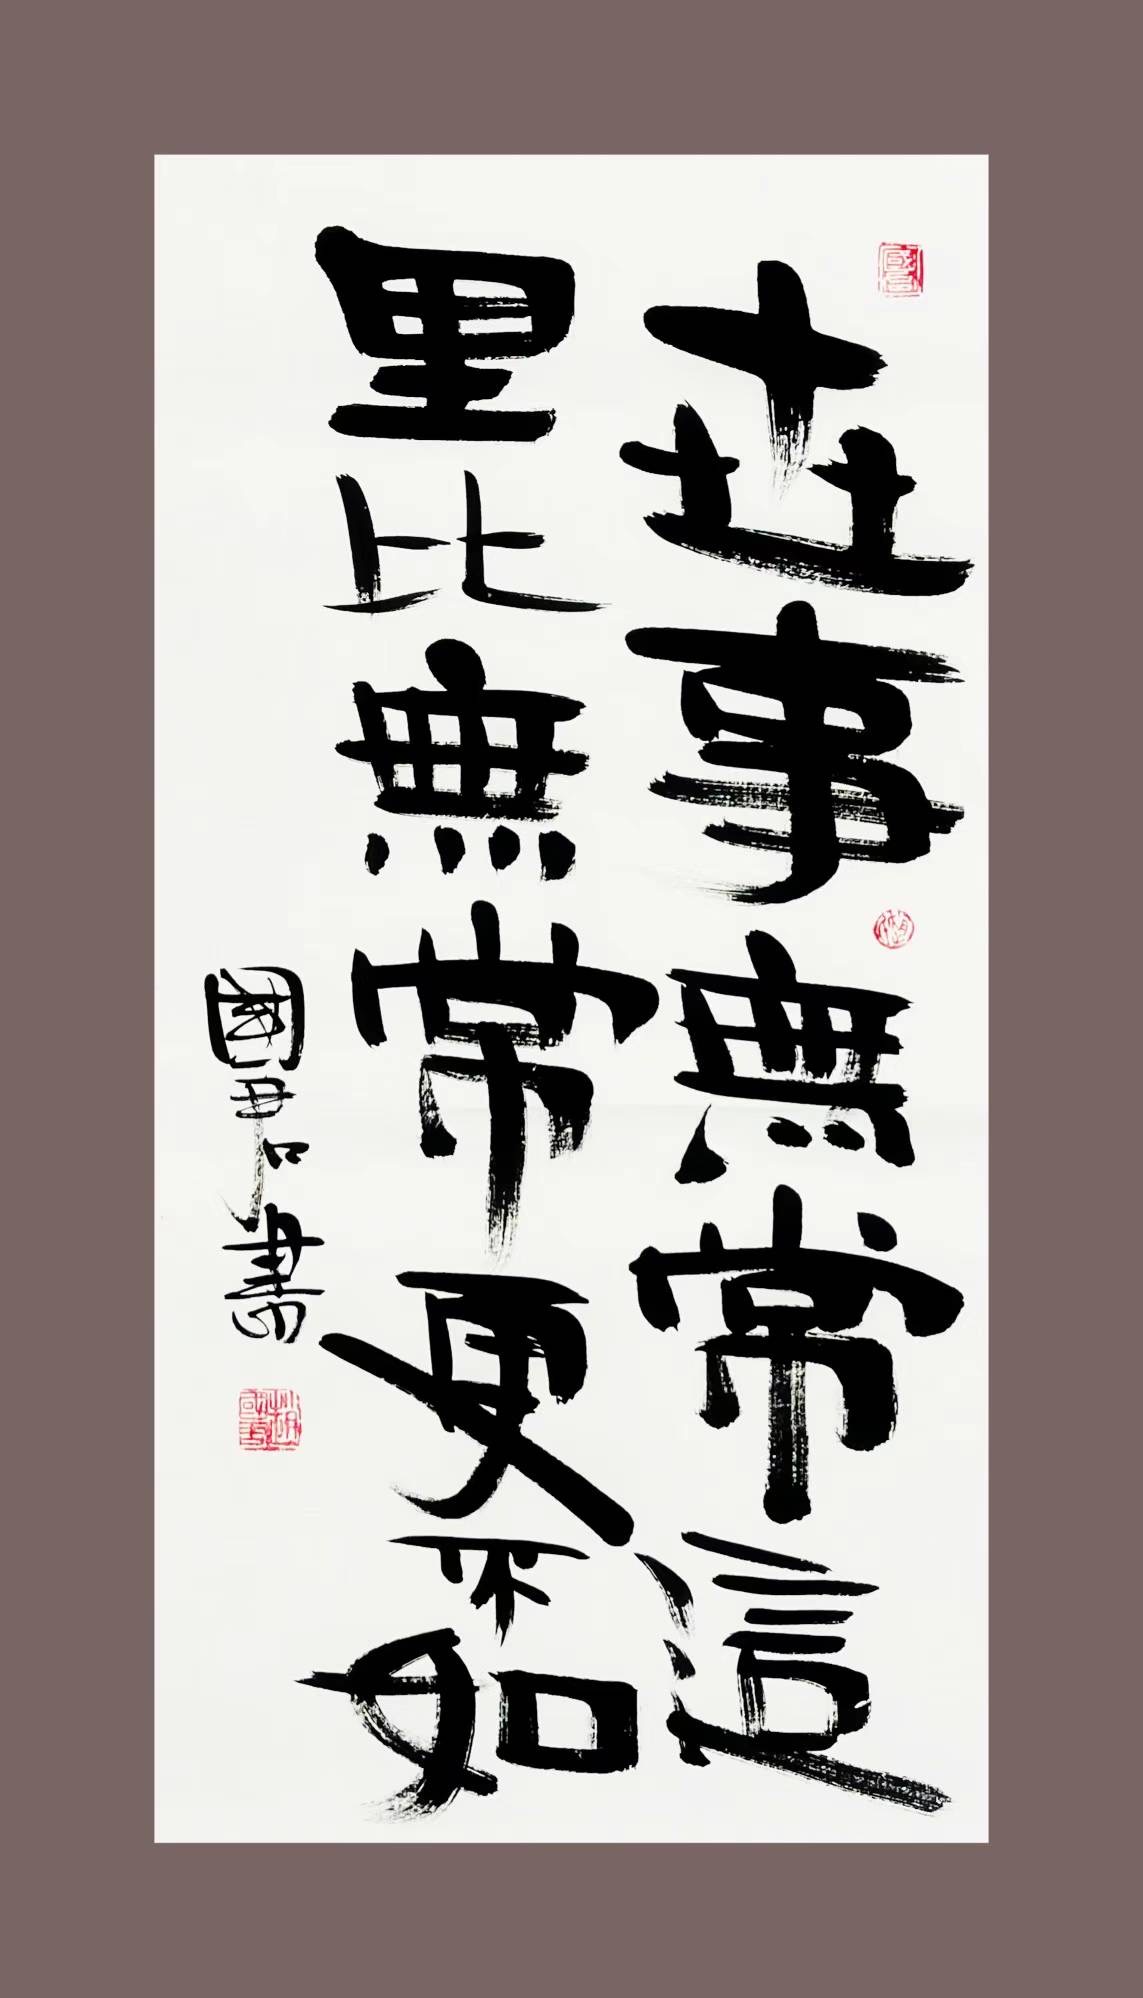 世事無常這
里比無常更不如
國君書